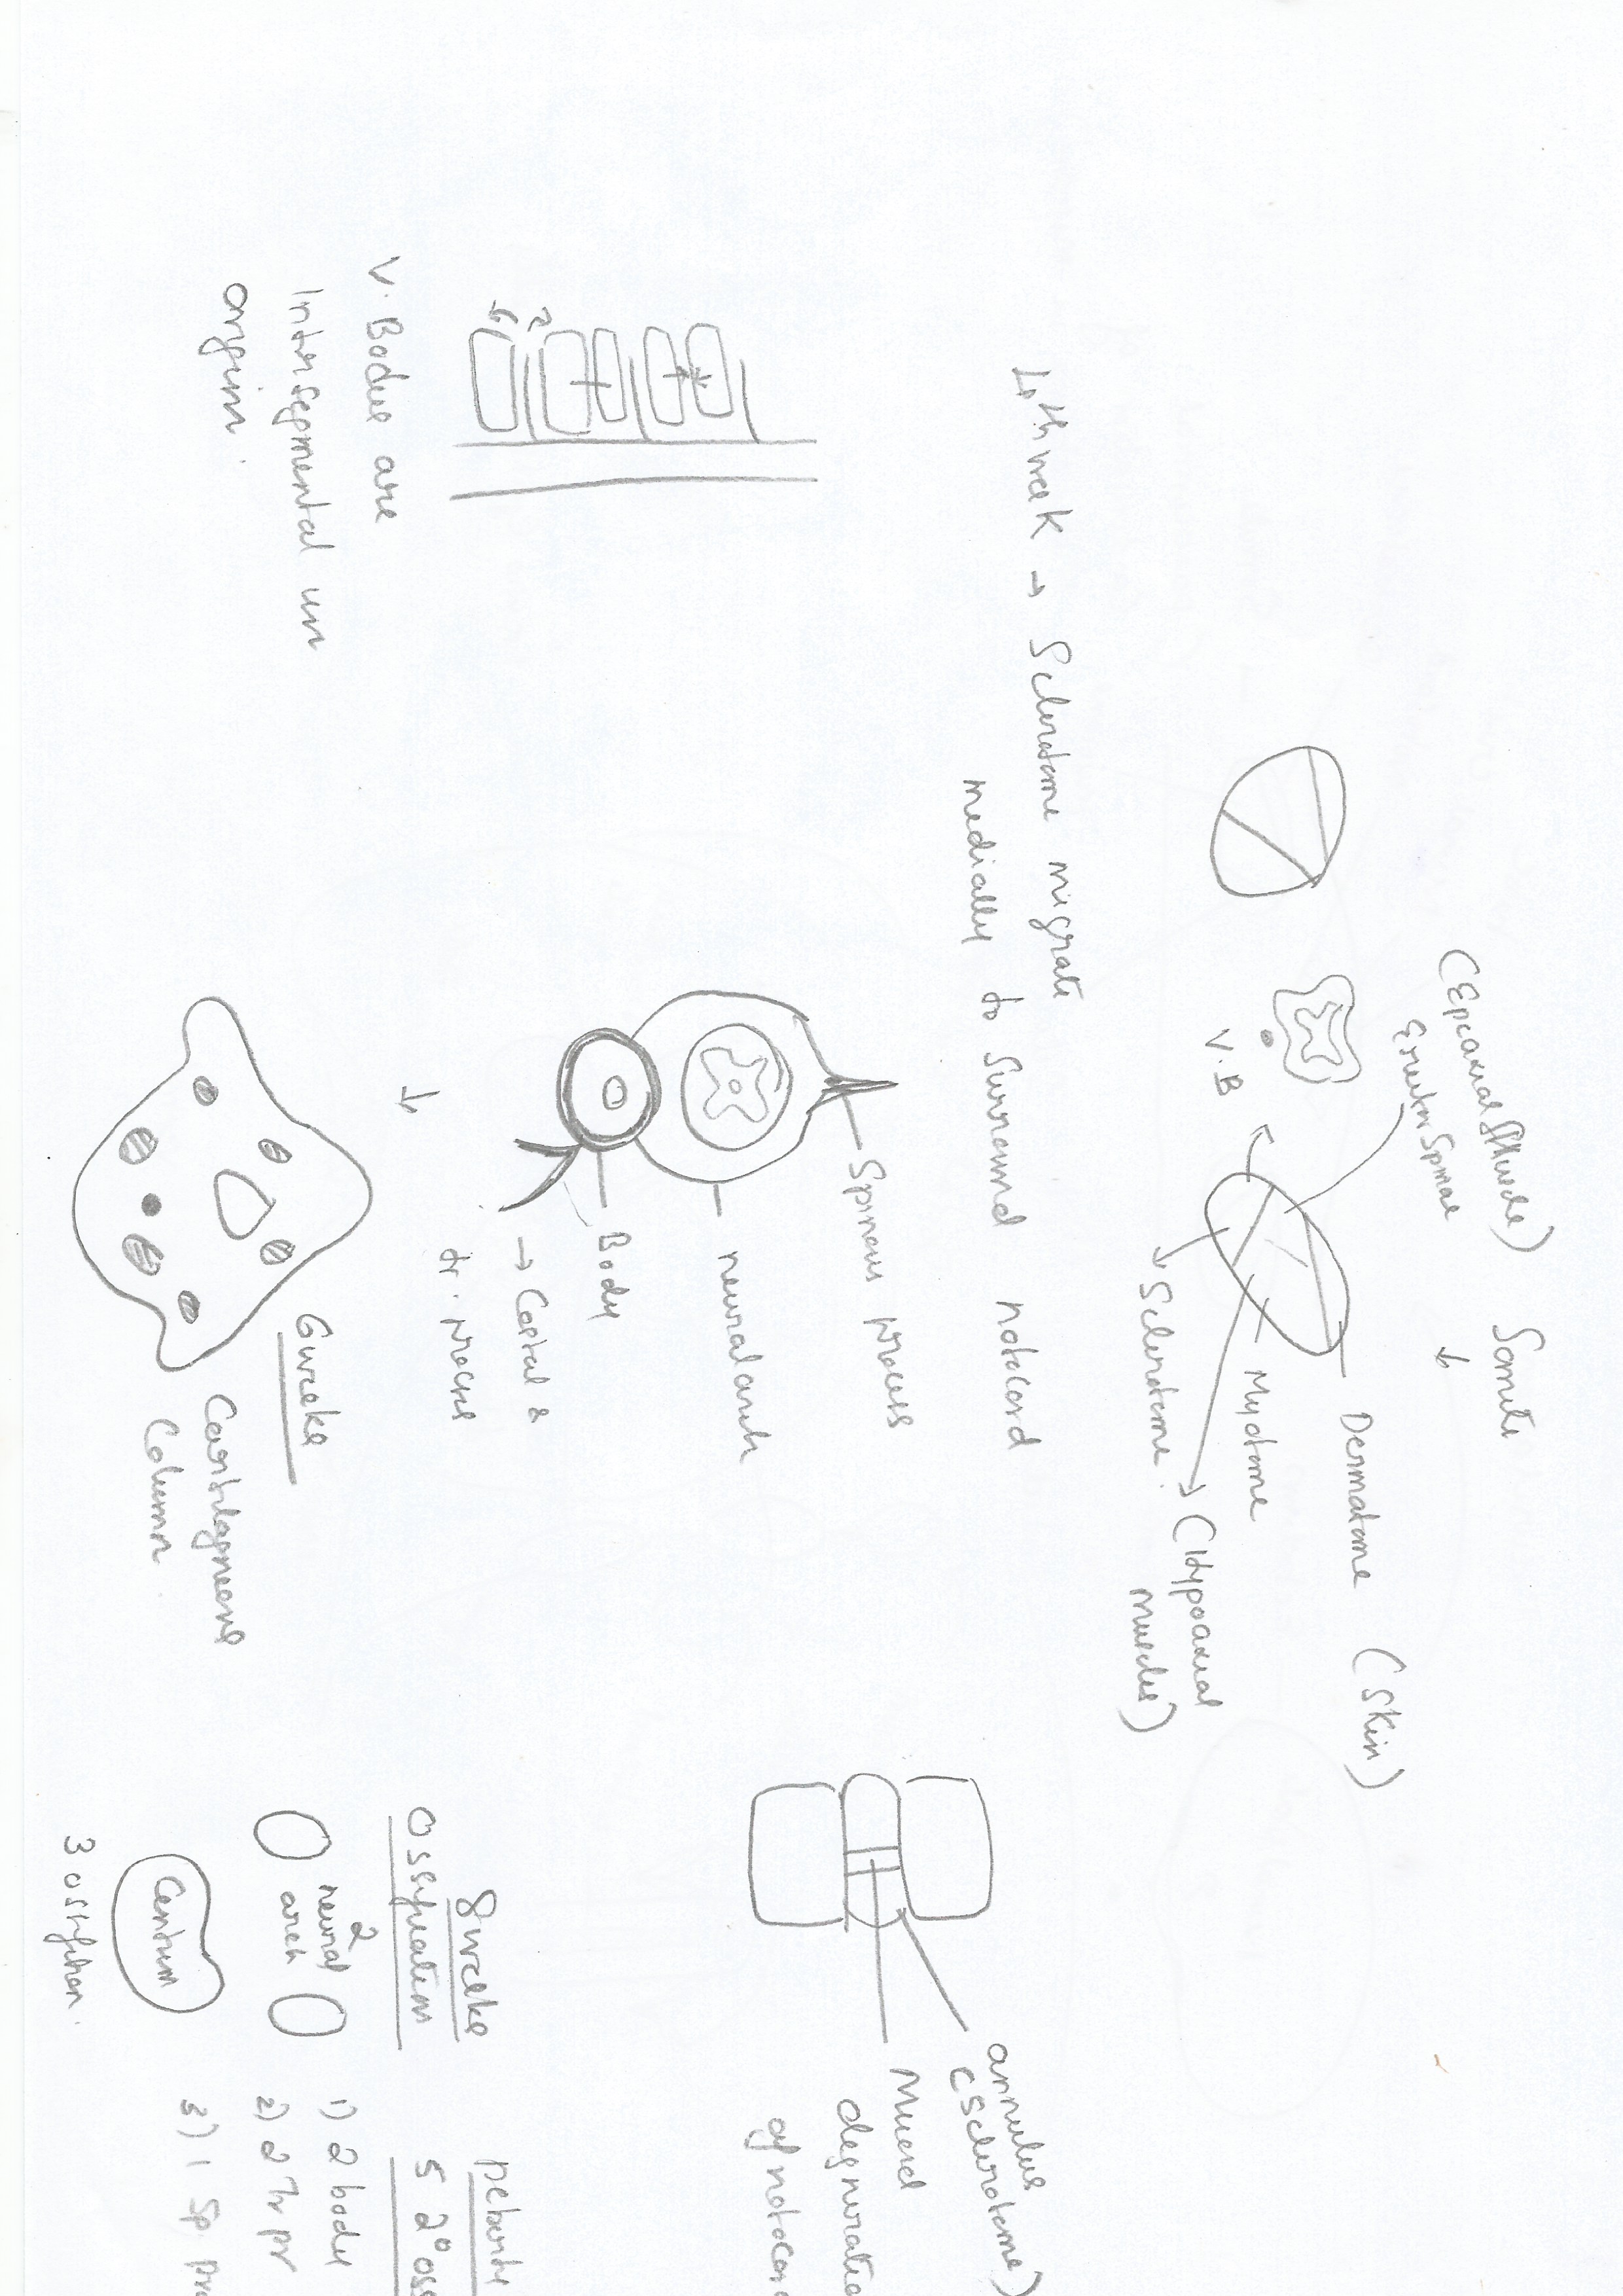 Somite
↓
(Epiaxial Muscle)
Erector Spinae
Dermatome (Skin)
Myotome
→ (Hypoaxial
muscles)
V.B
→ Sclerotome.
4th week → Sclerotome migrate
medially to Surround notocord
Spinous process
neural arch
Body
→ Costal &
tr. process
↓
V. Bodies are
Intersegmental in
origin.
6 weeks
Cartilagneous
Column
annulus
(Sclerotome)
Mucoid
degneratio
of notocor
8 weeks
Ossification
2
neural
arch
Centrum
3 ossifction.
puberty
5 2° oss
1) 2 body
2) 2 Tr pr
3) 1 Sp pro